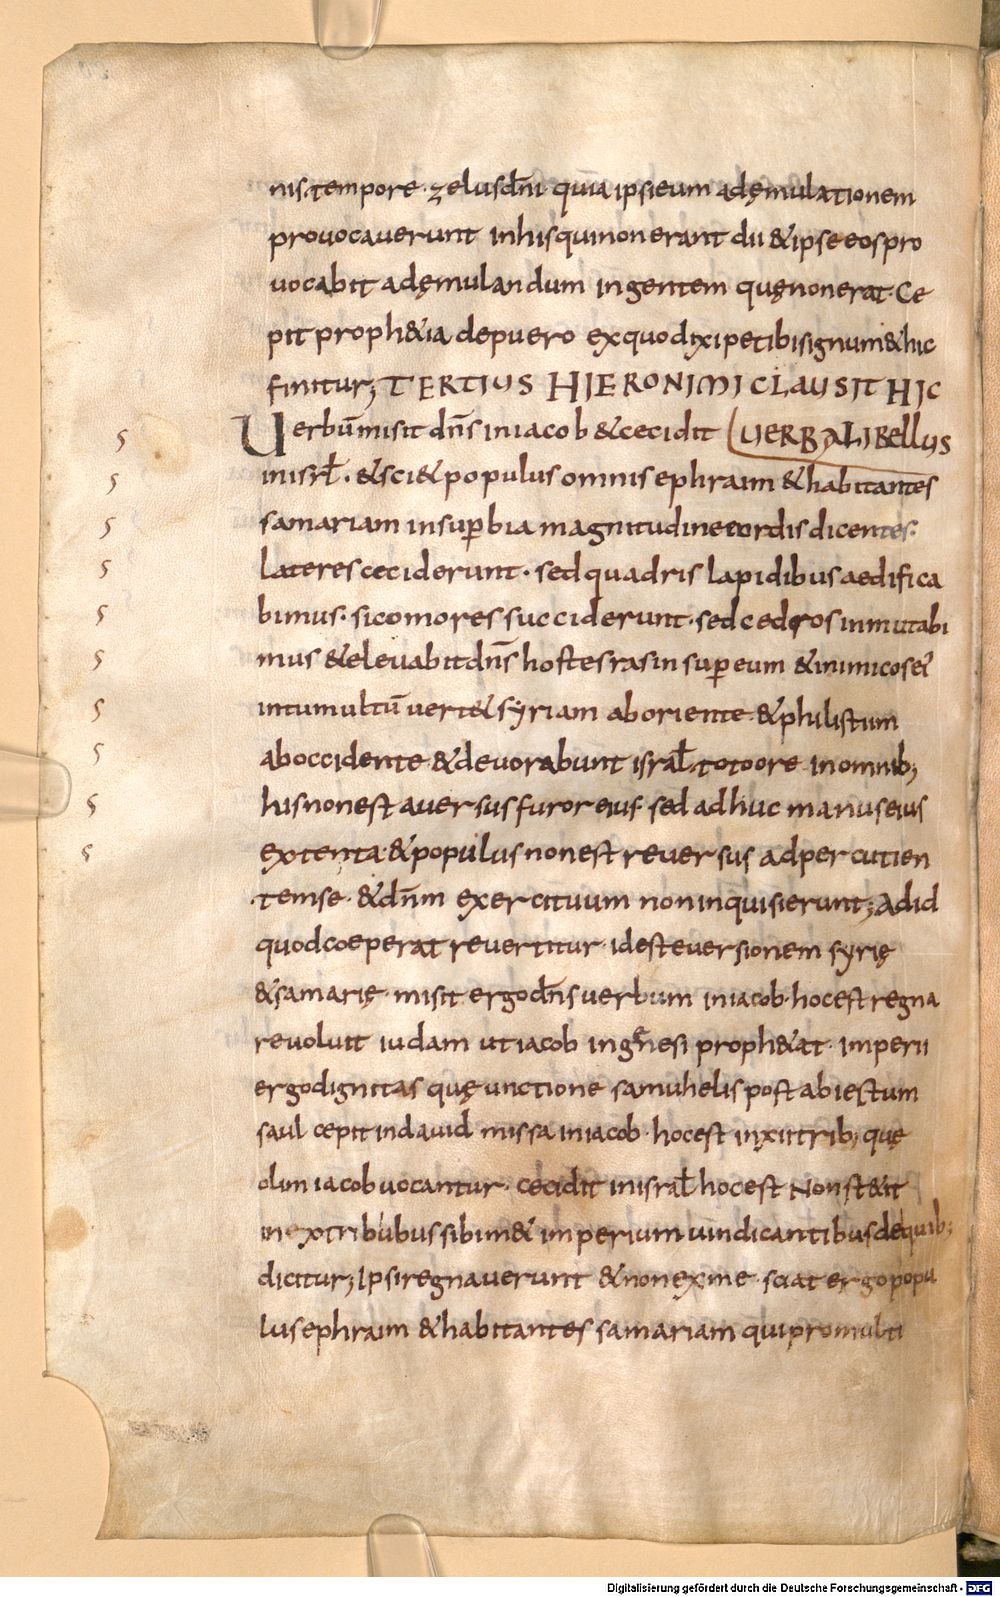 nis. tempore· zelus dn̄i· quia ipsi eum ad ęmulationem
provocaverunt in his qui non erant dii & ipse eos pro
vocabit ad ęmulandum in gentem quę non erat· Ce
pit proph&ia de puero ex quo dixi pete tibi signum & hic
finitur; TERTIUS HIERONIMI CLAUSIT HIC
Uerbū misit dn̄s in iacob & cecidit UERBA LIBELLUS
in isrł· & sci& populus omnis ephraim & habitantes
samariam in superbia magnitudine cordis dicentes·
lateres ceciderunt· sed quadris lapidibus aedifica
bimus· sicomores succiderunt· sed cedros inmutabi
mus & elevabit dn̄s hostes rasin super eum & inimicos ei'
in tumultū vert& syriam ab oriente· & philistum
ab occidente & devorabunt israł· toto ore· in omnib;
his non est aversus furor eius· sed adhuc manus eius
extenta· & populus non est reversus ad percutien
tem se· & dn̄m exercituum non inquisierunt; Ad id
quod coeperat revertitur· id est eversionem syrię
& samarię· misit ergo dn̄s verbum in iacob· hoc est regna
revoluit iudam ut iacob in genesi proph&at· imperii
ergo dignitas quę unctione samuhelis post abiectum
saul cepit in david missa in iacob· hoc est in xii trib; quę
olim iacob vocantur· cecidit in israł hoc est Non st&it
in ex tribubus sibim& imperium vindicantibus de quib;
dicitur; Ipsi regnaverunt & non ex me· sciat ergo popu
lus ephraim & habitantes samariam qui pro multi
Digitalisierung gefördert durch die Deutsche Forschungsgemeinschaft - DFG